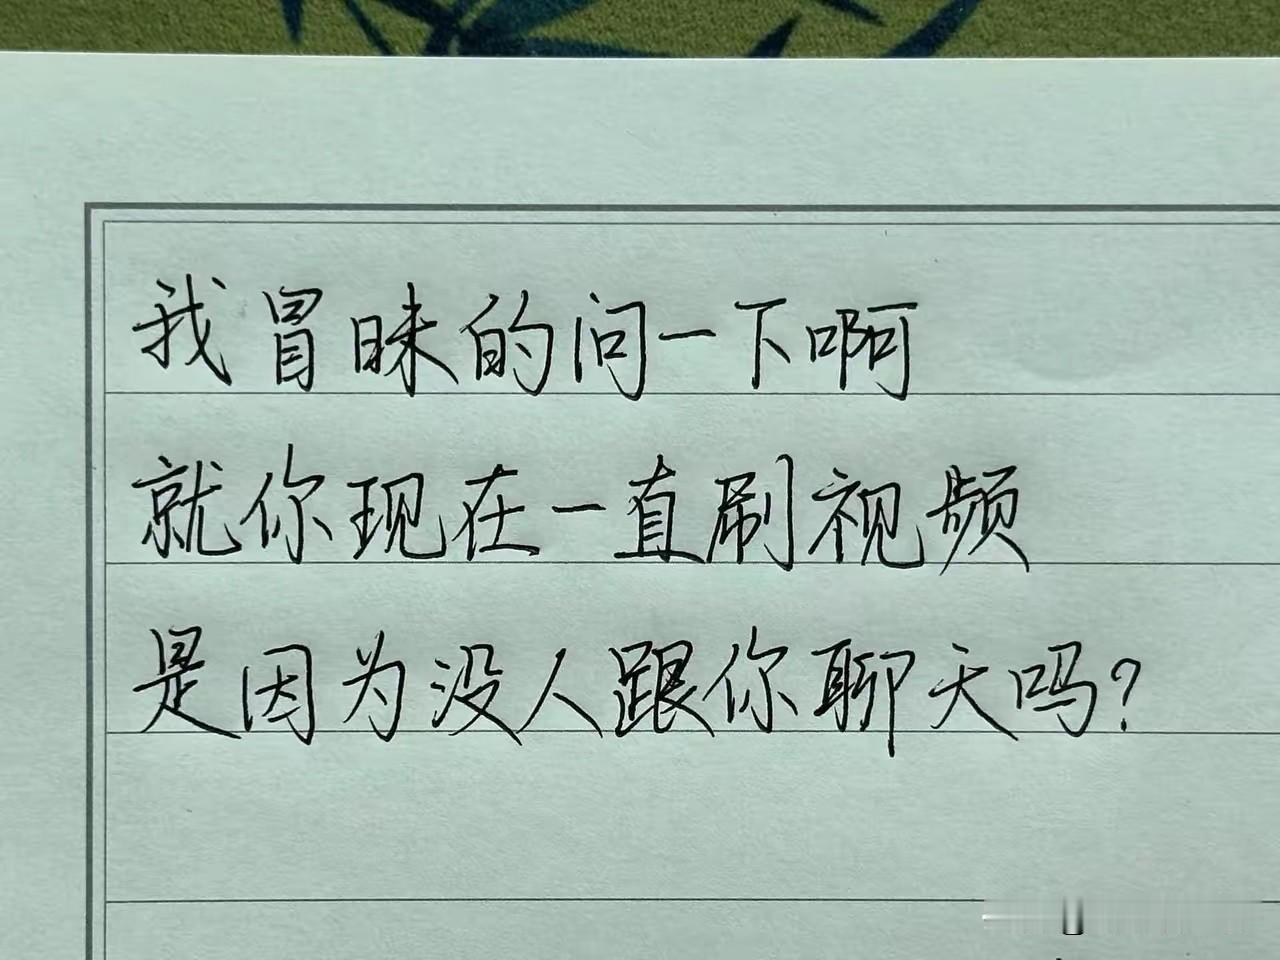 我冒昧的问一下啊
就你现在一直刷视频
是因为没人跟你聊天吗?